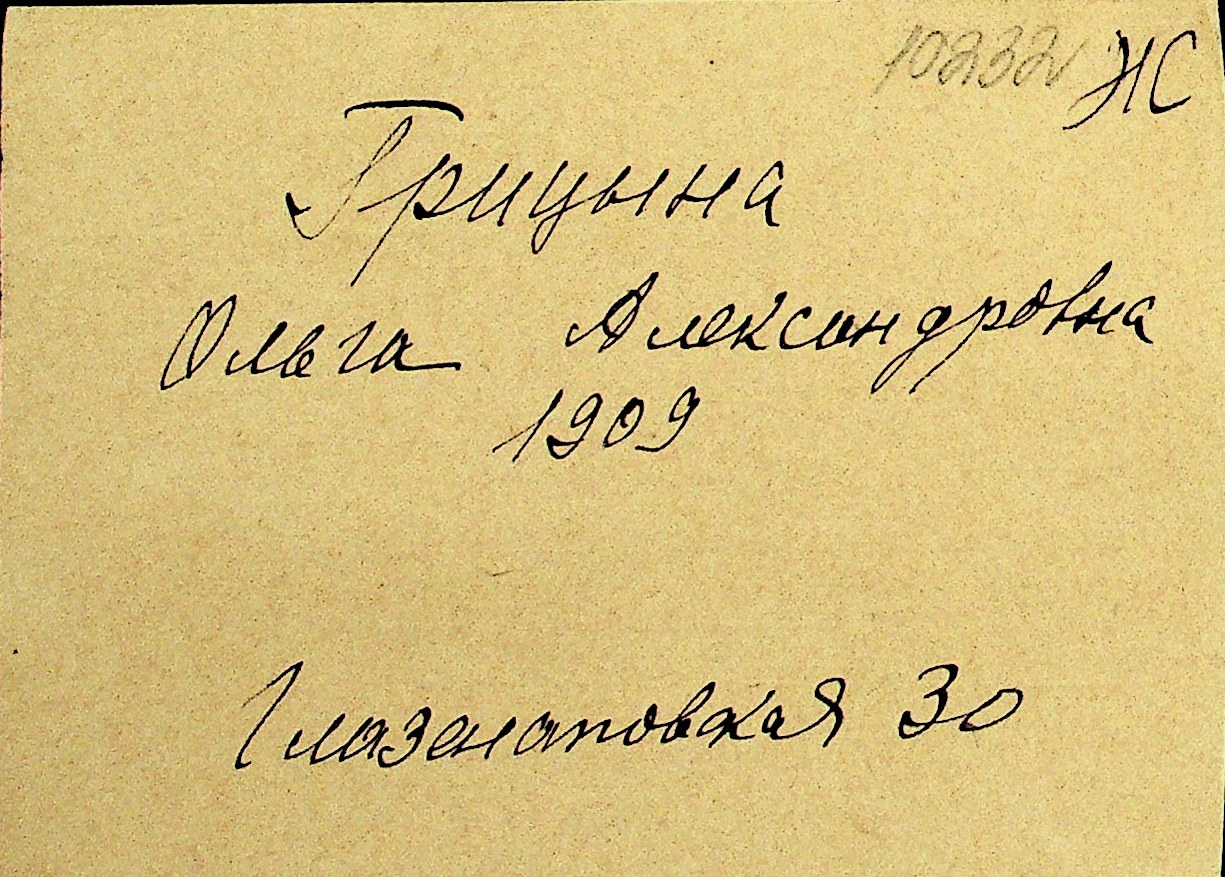 10232 ЖС
Грицына
Ольга Александровна
1909
Глазенаповская 30